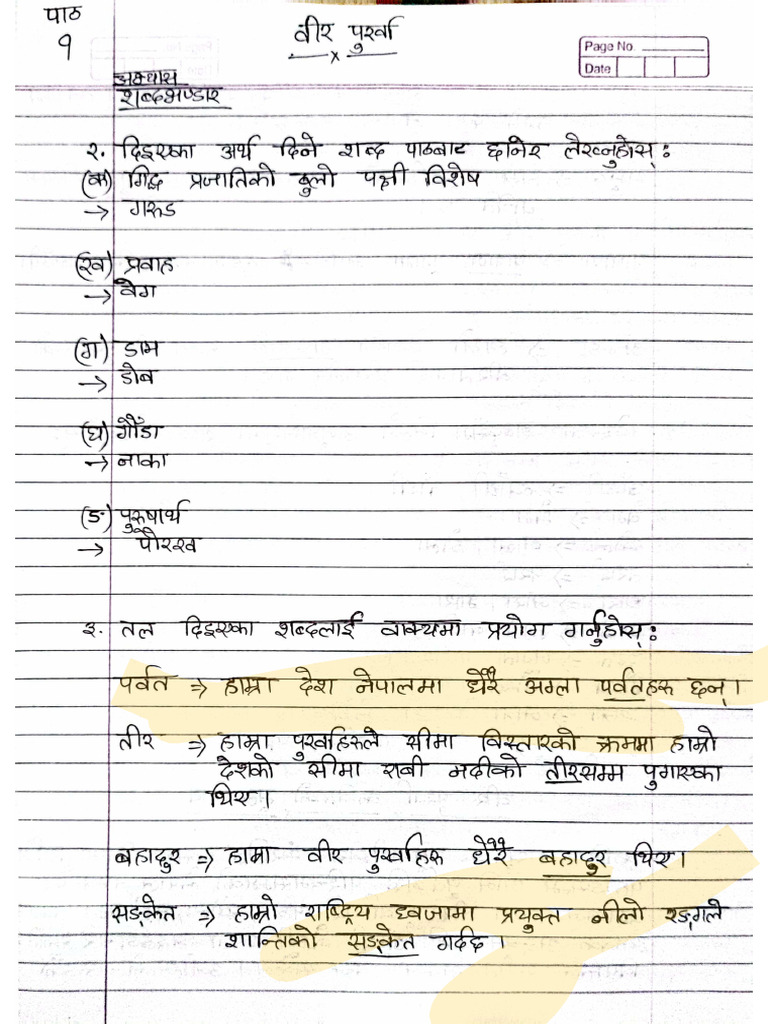 पाठ
१
वीर पुर्खा
x
Page No.
Date
अभ्यास
शब्दभण्डार
२. दिइएका अर्थ दिने शब्द पाठबाट छानेर लेख्नुहोस् :
(क) गिद्ध प्रजातिको ठुलो पक्षी विशेष
→ गरुड
(ख) प्रवाह
→ वेग
(ग) डाम
→ डोब
(घ) गौंडा
→ नाका
(ङ) पुरुषार्थ
→ पौरख
३. तल दिइएका शब्दलाई वाक्यमा प्रयोग गर्नुहोस् :
पर्वत ⇒ हाम्रा देश नेपालमा धेरै अग्ला पर्वतहरू छन् ।
तीर ⇒ हाम्रा पुर्खाहरूले सीमा विस्तारको क्रममा हाम्रो
देशको सीमा रावी नदीको तीरसम्म पुगाएका
थिए ।
बहादुर ⇒ हाम्रा वीर पुर्खाहरू धेरै बहादुर थिए ।
सङ्केत ⇒ हाम्रो राष्ट्रिय ध्वजामा प्रयुक्त नीलो रङ्गले
शान्तिको सङ्केत गर्दछ